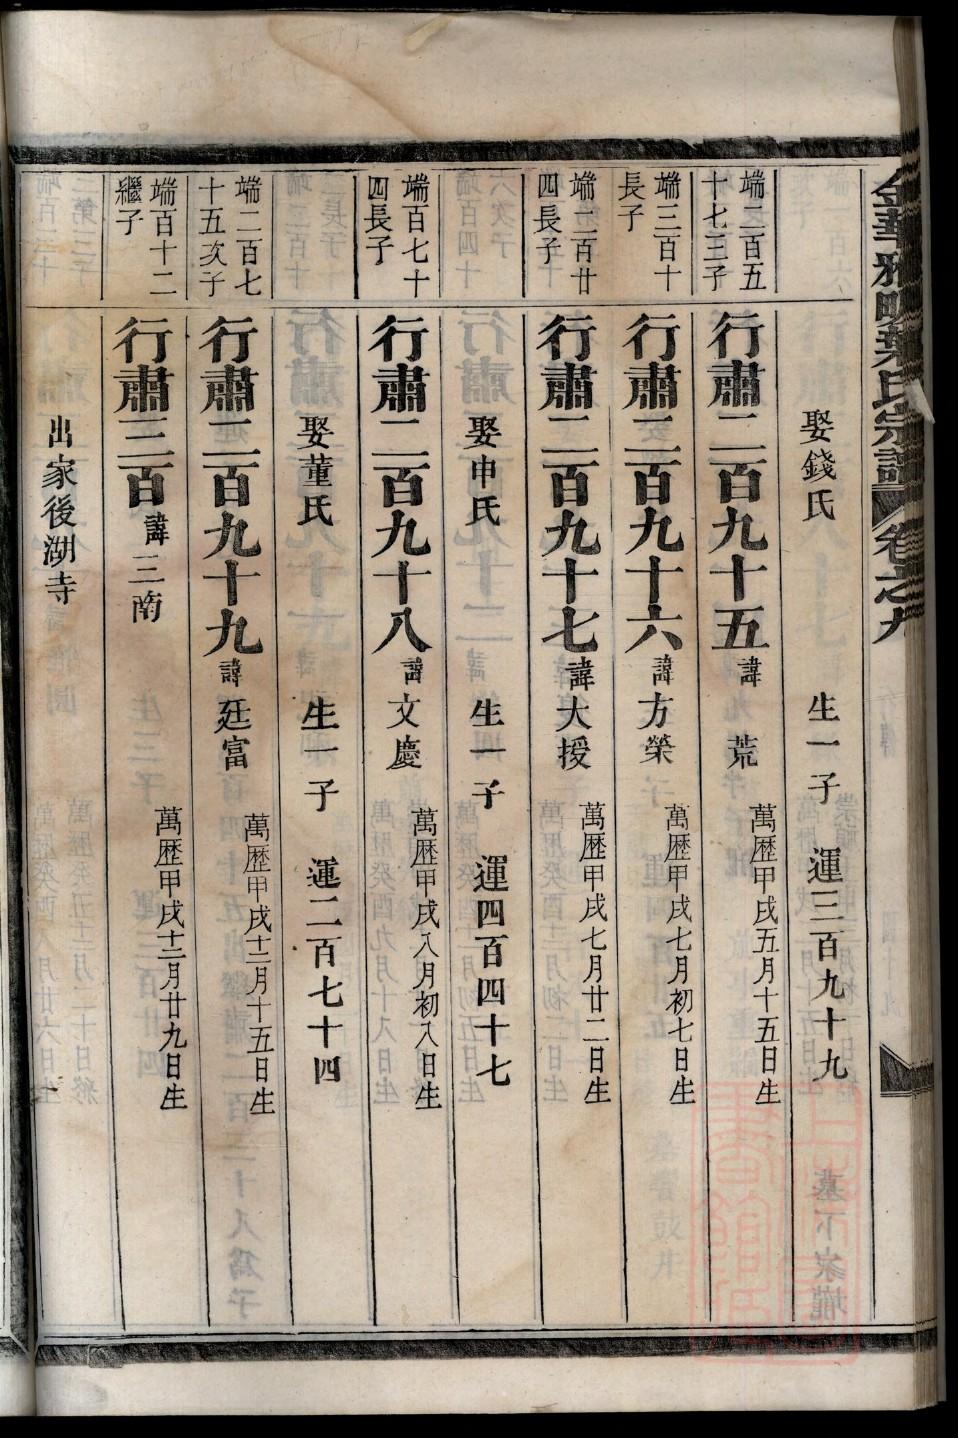 金華雅畈葉氏宗譜 卷之九
娶錢氏 生一子 運三百九十九 墓下家壠
端二百五十七三子
行肅二百九十五 諱九荒 萬歷甲戌五月十五日生
端三百十長子
行肅二百九十六 諱方榮 萬歷甲戌七月初七日生
端二百廿四長子
行肅二百九十七 諱大援 萬歷甲戌七月廿二日生
娶申氏 生一子 運四百四十七
端百七十四長子
行肅二百九十八 諱文慶 萬歷甲戌八月初八日生
娶董氏 生一子 運二百七十四
端二百七十五次子
行肅二百九十九 諱廷富 萬歷甲戌十二月十五日生
端百十二繼子
行肅三百 諱三南 萬歷甲戌十二月廿九日生
出家後湖寺